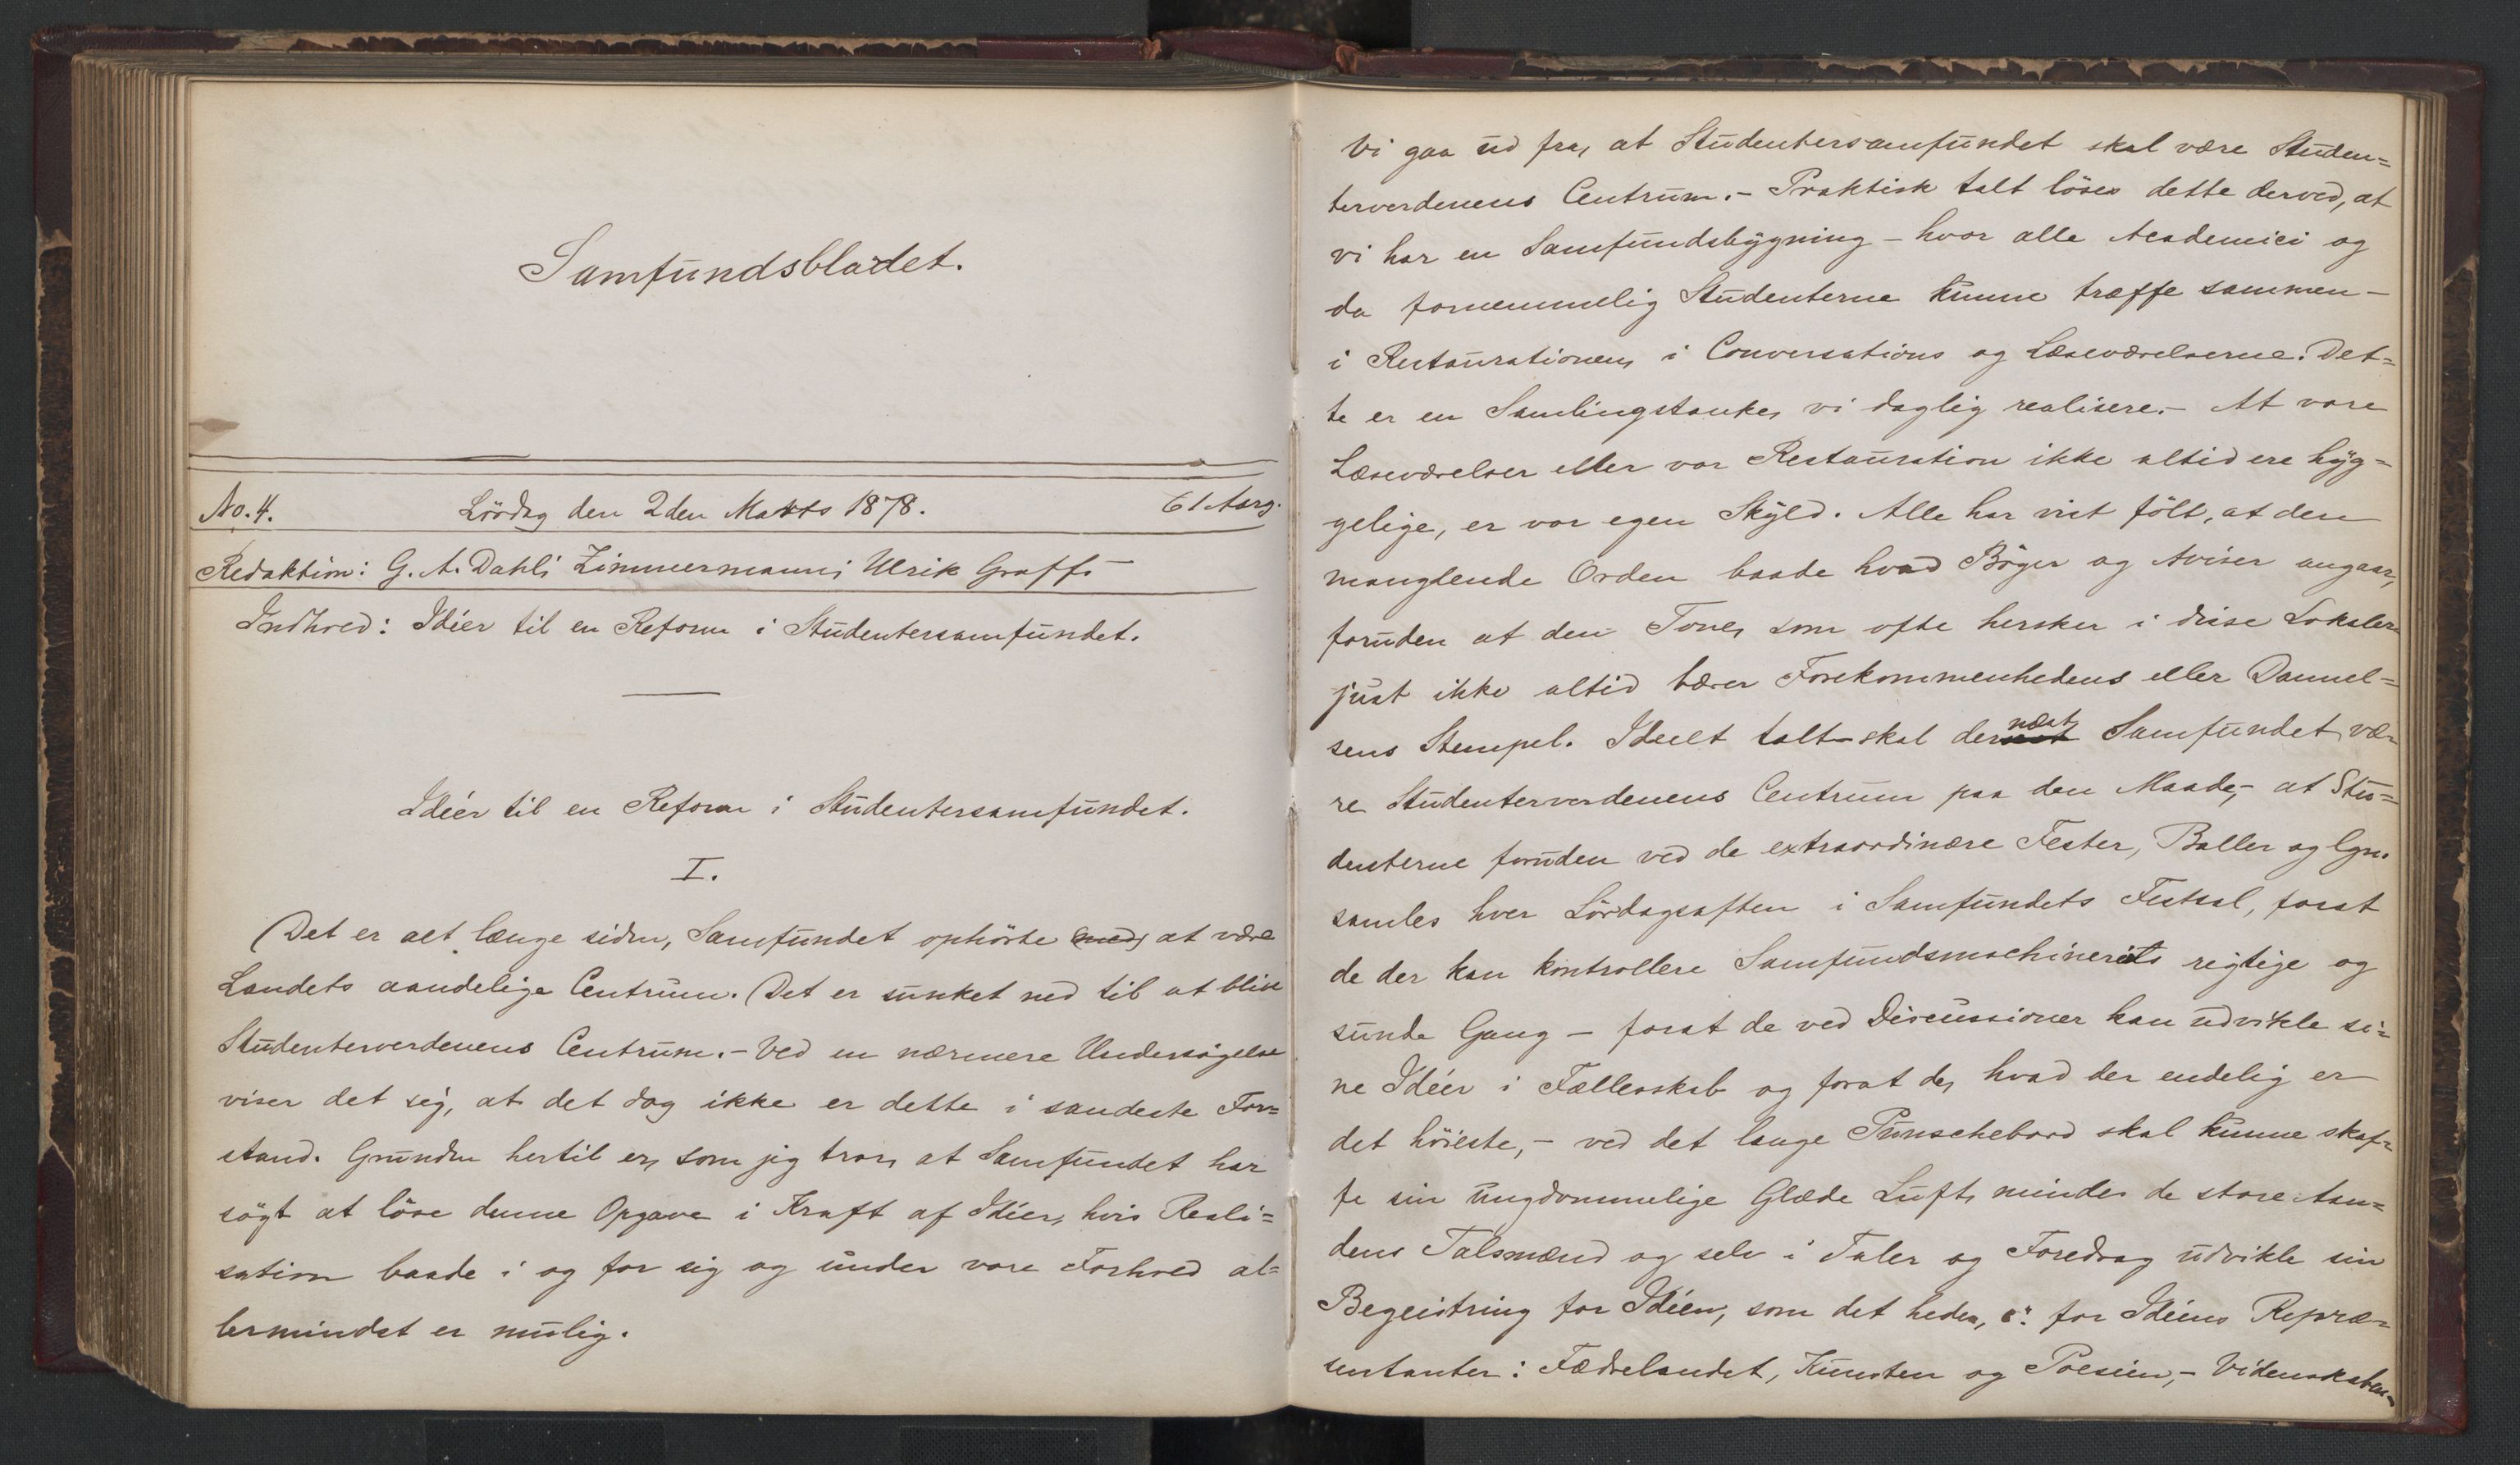 Samfundsbladet.
No. 4. Lördag den 2den Marts 1878. 61 Aarg.
Redaktion: G. A. Dahl; Zimmermann; Ulrik Graff.
Indhold: Idéer til en Reform i Studentersamfundet.
Idéer til en Reform i Studentersamfundet.
I.
Det er alt længe siden, Samfundet ophörte med at være
Landets aandelige Centrum. Det er sunket ned til at blive
Studenterverdenens Centrum. - Ved en nærmere Undersögelse
viser det sig, at det dog ikke er dette i sandeste For=
stand. Grunden hertil er, som jeg tror, at Samfundet har
sögt at löse denne Opgave i Kraft af Idéer, hvis Reali=
sation baade i og for sig og under vore Forhold al=
lermindst er mulig.
Vi gaa ud fra, at Studentersamfundet skal være Studen=
terverdenens Centrum. - Praktisk talt löses dette derved, at
vi har en Samfundsbygning - hvor alle Academici og
da fornemmelig Studenterne kunne træffe sammen -
i Restaurationen, i Conversations og Læseværelserne. Det=
te er en Samlingstanke, vi daglig realisere. - At vore
Læseværelser eller vor Restauration ikke altid ere hyg=
gelige, er vor egen Skyld. Alle har vist fölt, at den
manglende Orden baade hvad Böger og Aviser angaar,
foruden at den Tone, som ofte hersker i disse Lokaler
just ikke altid bærer Forekommenhedens eller Dannel=
sens Stempel. Ideelt talt skal dernæst Samfundet væ=
re Studenterverdenens Centrum paa den Maade, - at Stu=
denterne foruden ved de extraordinære Fester, Baller og lgn.
samles hver Lördagsaften i Samfundets Festsal, forat
de der kan kontrollere Samfundsmachineriets rigtige og
sunde Gang - forat de ved Discussioner kan udvikle si=
ne Idéer i Fællesskab og forat de, hvad der endelig er
det höieste, - ved det lange Punschebord skal kunne skaf=
fe sin ungdommelige Glæde Luft, mindes de store Aan=
dens Talsmænd og selv i Taler og Foredrag udvikle sin
Begeistring for Idéen, som det heder, ɔ: for Idéens Repræ=
sentanter: Fædrelandet, Kunsten og Poesien, - Videnskaben -